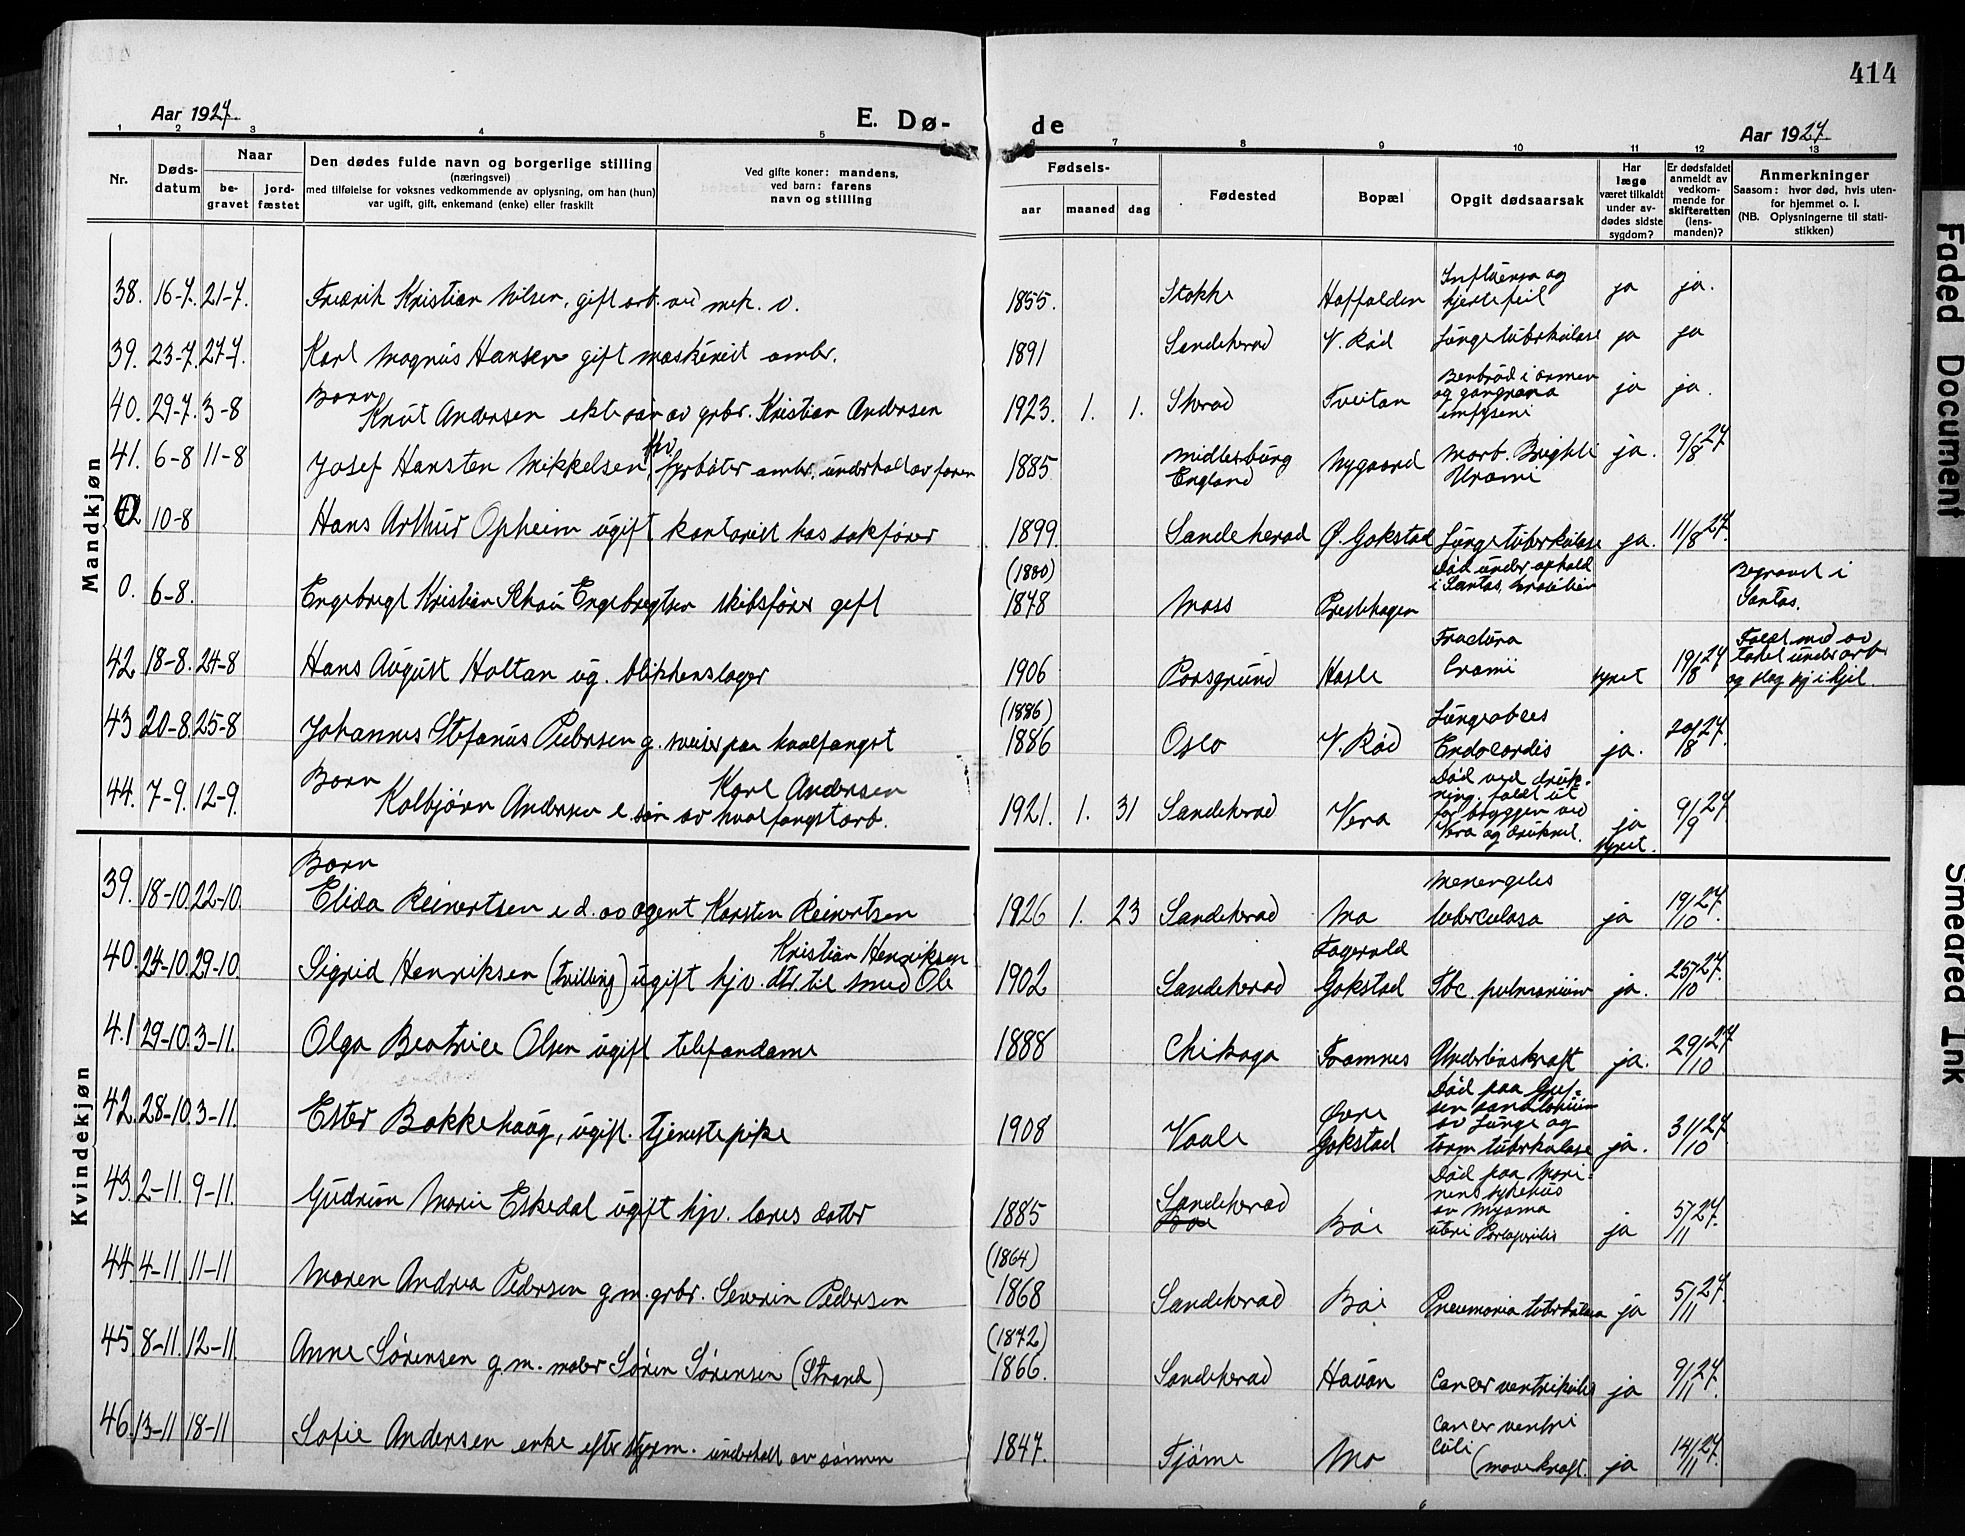 414
Aar 1927.
E. Dø-
de
Aar 1927
1 2 3 4 5 6 7 8 9 10 11 12 13
Nr.
Døds-
datum
Naar
be-
gravet
jord-
fæstet
Den dødes fulde navn og borgerlige stilling
(næringsvei)
med tilføielse for voksnes vedkommende av oplysning, om han (hun)
var ugift, gift, enkemand (enke) eller fraskilt
Ved gifte koner: mandens,
ved barn: farens
navn og stilling
Fødsels-
aar
maaned
dag
Fødested
Bopæl
Opgit dødsaarsak
Har
læge
været tilkaldt
under av-
dødes sidste
sygdom?
Er dødsfaldet
anmeldt av
vedkom-
mende for
skifteretten
(lens-
manden)?
Anmerkninger
Saasom: hvor død, hvis uten-
for hjemmet o. l.
(NB. Oplysningerne til stati-
stikken)
Mandkjøn
38. 16-7. 21-7. Fredrik Kristian Nilsen, gift arb. ved mek. v. 1855. Stokke Haffalden Influensa og
hjertefeil ja ja.
39. 23-7. 27-7. Karl Magnus Hansen gift maskinist ambr. 1891 Sandeherad V. Rød Lungetuberkulose ja ja
40. 29-7. 3-8 Barn
Knut Andersen ekte søn av grbr. Kristian Andersen 1923. 1. 1. Shrad Tveitan Benbrud i armen
og gangræna
emfyseni ja ja.
41. 6-8 11-8 Josef Hansten Mikkelsen, fyrbøter ambr. underhold av faren 1885. Midlesburg
England Nygaard Morb. Brighti
Uræmi ja. 9/8 27
42 10-8 Hans Arthur Opheim ugift kontorist hos sakfører 1899. Sandeherad Ø. Gokstad Lungetuberkulose ja. 11/8 27.
0. 6-8. Engebregt Kristian Schau Engebregtsen skibsfører gift (1880)
1878 Moss Prestehagen Død under ophold
i Santos, Brasilien Begravet i
Santos.
42. 18-8. 24-8 Hans August Holtan ug. blikkenslager 1906 Porsgrund Hasle Fractura
Cranii synet 19/8 27 Faldt ned av
taket under arb
og slog sig ihjel.
43 20-8. 25-8 Johannes Stefanus Pedersen g. sveiser paa hvalfangst (1886)
1886 Oslo V. Rød Lungeabces
Endocardis ja. 20/8 27.
44. 7-9. 12-9. Barn
Kolbjørn Andersen e. søn av hvalfangstarb. Karl Andersen 1921. 1. 31 Sandeherad Vera Død ved druk-
ning, faldt ut
for bryggen ved
Vera og druknet. ja
synet. 9/9 27
Kvindekjøn
39. 18-10. 22-10. Barn
Elida Reinertsen e. d. av agent Karsten Reinertsen 1926 1. 23 Sandeherad Mo Menengitis
tuberculosa ja 19/10 27.
40. 24-10. 29-10. Sigrid Henriksen (tvilling) ugift hjv. dtr. til smed Ole
Kristian Henriksen 1902 Sandeherad Fagervold
Gokstad Tbc. pulmonium ja. 25/10 27.
41 29-10. 3-11. Olga Beatrice Olsen ugift telefondame 1888 Chikago Framnes Underlivskræft ja. 29/10 27
42. 28-10. 3-11. Ester Bakkehaug, ugift. tjenestepike 1908 Vaale Øvre
Gokstad Død paa Gref-
sen sanatorium
av Lunge og
tarm tuberkulose ja. 31/10 27
43. 2-11. 9-11. Gudrun Marie Eskedal ugift hjv. læres datter 1885 Sandeherad
Bøe Bøe Død paa Mari-
nens sykehus
av Myoma
uteri ja 5/11 27.
44 4-11. 11-11 Maren Andrea Pedersen g. m. grbr. Severin Pedersen (1864)
1868 Sandeherad Bøe Pneumonia tuberkulosa ja 5/11 27.
45 8-11. 12-11. Anne Sørensen g. m. maler Søren Sørensen (Strand) (1872)
1866. Sandeherad Hauan Cancer ventrikulis ja 9/11 27.
46. 13-11 18-11 Sofie Andersen enke efter styrm. underholdt av sønnen 1847. Tjøme Mo Cancer ventri
culi
(mavekræft. ja 14/11 27.
Faded Document
Smeared Ink